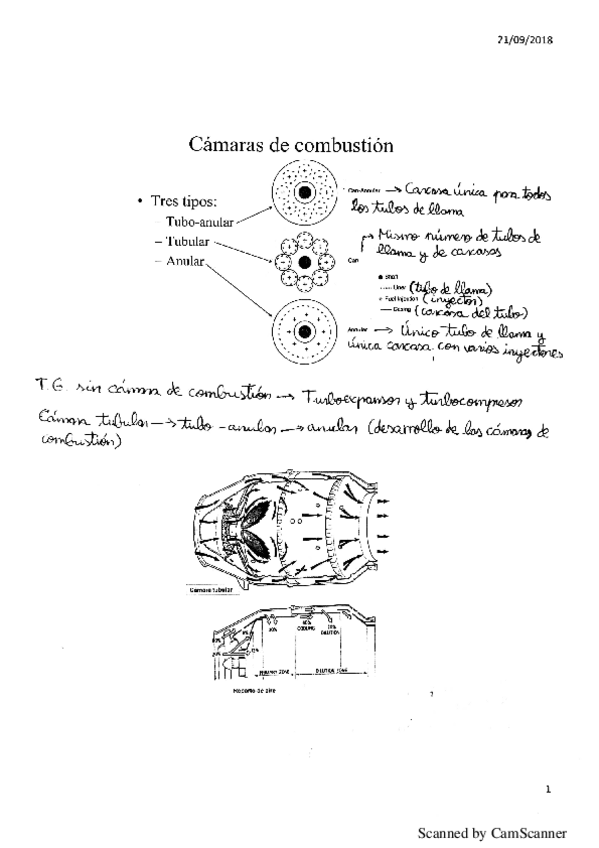 21/09/2018
Cámaras de combustión
• Tres tipos:
– Tubo-anular
– Tubular
– Anular
Can-Annular → Carcasa única para todos
los tubos de llama
→ Mismo número de tubos de
llama y de carcasas
Can
Shaft
Liner (tubo de llama)
+ Fuel injection (inyector)
— Casing (carcasa del tubo)
Annular → Único tubo de llama y
única carcasa con varios inyectores
T.G. sin cámara de combustión → Turboexpansor y turbocompresor
Cámara tubular → tubo-anular → anular (desarrollo de las cámaras de
combustión)
Camara tubular
20%
40%
COOLING
20%
DILUTION
PRIMARY ZONE
DILUTION ZONE
de aire
1
Scanned by CamScanner